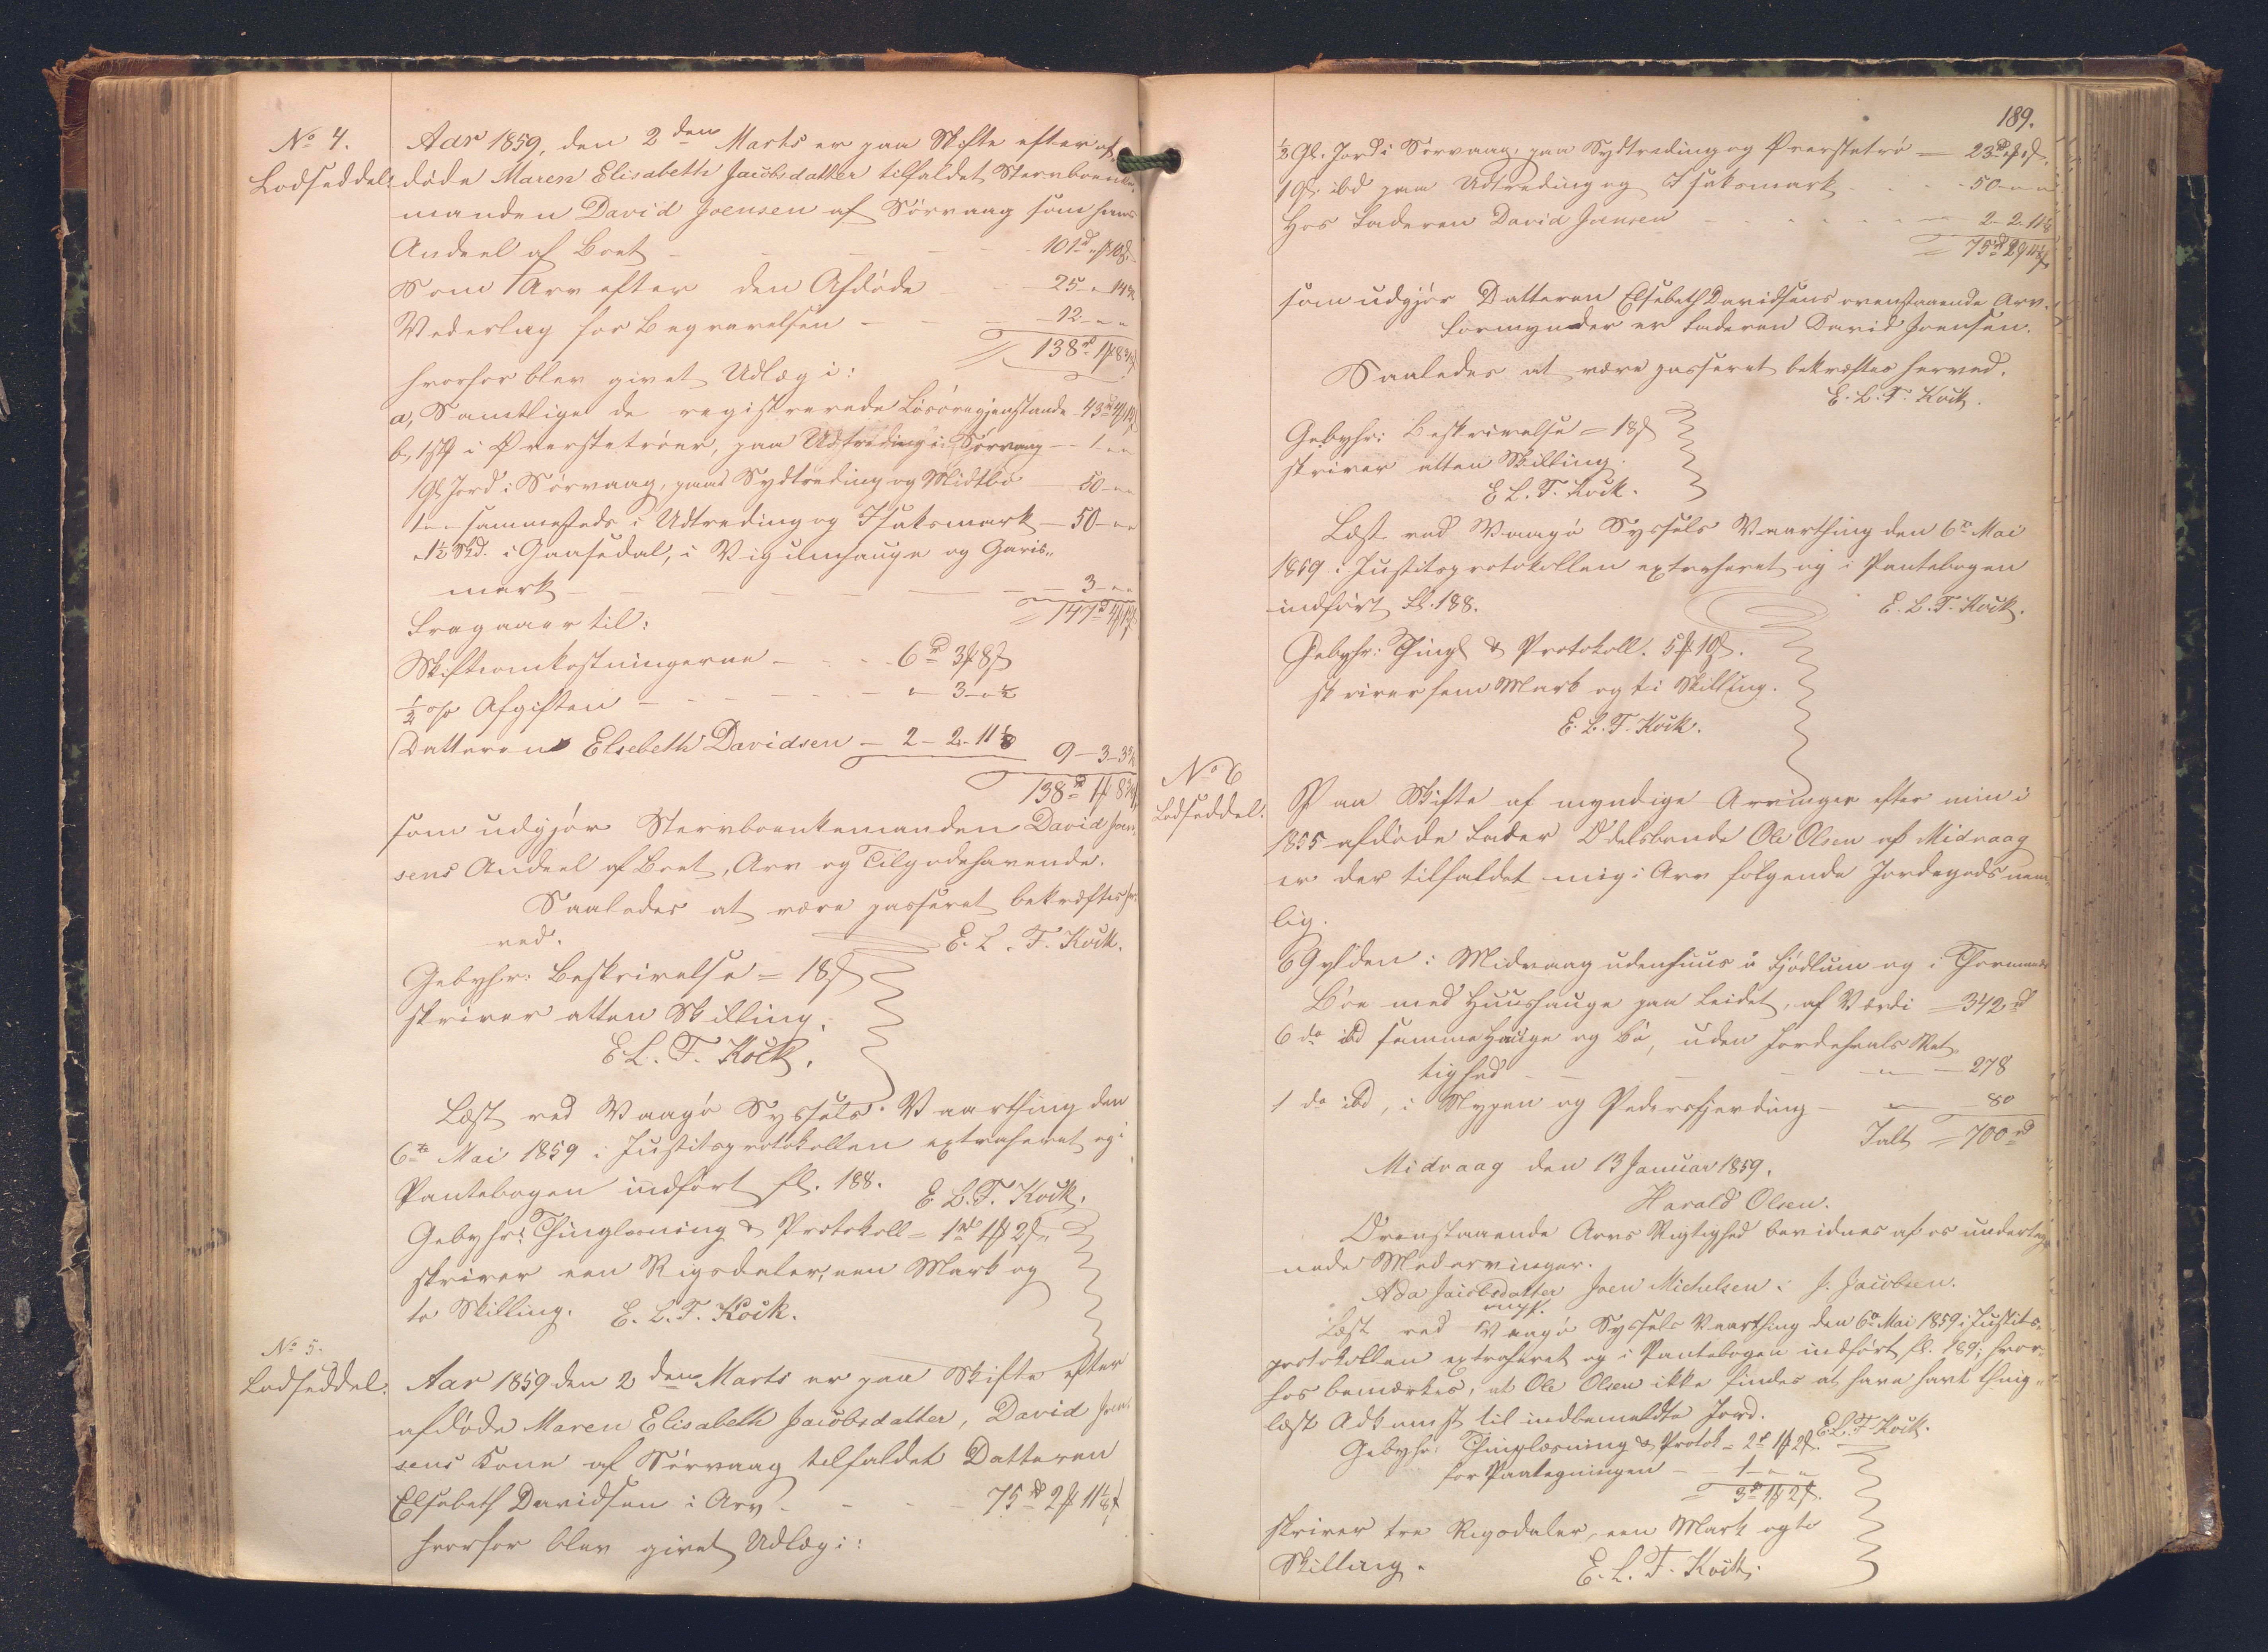 No 4.
Lodseddel.
Aar 1859, den 2den Marts er paa Skifte efter af
döde Maren Elisabeth Jacobsdatter tilfaldet Stervboenke
manden David Joensen af Sörvaag som hans
Andeel af Boet - - - 101rd " 10s
Som Arv efter den Afdöde - 25 - " 14¾
Vederlag for Begravelsen - - - 12 - " "
= 138rd 1 8¾
hvorfor blev givet Udlæg i:
a, Samtlige de registrerede Lösöregjenstande 43rd 4 12
b, i Överstetröer, paa Udtreding i Sörvaag - 1 " "
1 Gl. Jord i Sörvaag, paa Sydtreding og Midtbö - 50 - " "
1 " - sammesteds i Udtreding og Isaksmark - 50 - " "
" 1½ Skd. i Gaasedal, i Vigulmhauge og Garis„
mark - - - - 3 - " "
= 147rd 4 12
Fragaaer til:
Skifteomkostningerne - - - 6rd 3 8s
½ o/o Afgiften - - - " - 3 - " ½
Datteren Elsebeth Davidsen - 2 - 2 - 11⅛
9 - 3 - 3⅝
138rd 1 8¾
som udgjör Stervboenkemanden David Joen-
sens Andeel af Boet, Arv og Tilgodehavende.
Saaledes at være passeret bekræftes her
ved.
E. L. T. Kock.
Gebyhr: Beskrivelse = 18s
skriver atten Skilling.
E. L. T. Kock.
Læst ved Vaagö Syssels Vaarthing den
6te Mai 1859 i Justitsprotokollen extraheret og i
Pantebogen indfört fl. 188.
E. L. T. Kock.
Gebyhr: Thinglæsning & Protokoll = 1rd 1 2s
skriver een Rigsdaler, een Mark og
to Skilling. E. L. T. Kock.
No 5.
Lodseddel.
Aar 1859 den 2den Marts er paa Skifte efter
afdöde Maren Elisabeth Jacobsdatter, David Joen
sens Kone af Sörvaag tilfaldet Datteren
Elsebeth Davidsen i Arv - - - 75rd 2 11⅛
hvorfor blev givet Udlæg i:
189.
½ Gl. Jord i Sörvaag, paa Sydtreding og Överstetrö - 23rd
1 Gl. ibd paa Udtreding og Isaksmark - - - 50 - " "
Hos Faderen David Joensen - - - 2 - 2 - 11⅛
= 75rd 2 11⅛
som udgjör Datteren Elsebeth Davidsens ovenstaaende Arv.
Formynder er Faderen David Joensen.
Saaledes at være passeret bekræftes herved.
E. L. T. Kock.
Gebyhr: Beskrivelse = 18s
skriver atten Skilling.
E. L. T. Kock.
Læst ved Vaagö Syssels Vaarthing den 6te Mai
1859 i Justitsprotokollen extraheret og i Pantebogen
indfört fl. 188.
E. L. T. Kock.
Gebyhr: Thingl & Protokoll. 5 10s.
skriver fem Mark og ti Skilling.
E. L. T. Kock.
No 6
Lodseddel.
Paa Skifte af myndige Arvinger efter min i
1855 afdöde Fader Odelsbonde Ole Olsen af Midvaag
er der tilfaldet mig i Arv fölgende Jordegods nem„
lig.
6 Gylden i Midvaag udenhuus á Fjödlum og i Thormands
Böe med Huushauge paa Leidet, af Værdi = 342rd
6 do ibd samme Hauge og Bö, uden Jordehaals Ret„
tighed - - - - " - 278
1 do ibd, i Nypen og Pedersfjerding - " - 80
Ialt = 700rd
Midvaag den 13 Januar 1859.
Harald Olsen.
Ovenstaaende Arvs Rigtighed bevidnes af os underteg
nede Medarvinger.
Ada Jacobsdatter Joen Michelsen. J. Jacobsen.
Læst ved Vaagö Syssels Vaarthing den 6te Mai 1859 i Justits-
protokollen extraheret og i Pantebogen indfört fl. 189; hvor-
hos bemærkes, at Ole Olsen ikke findes at have havt thing„
læst Adkomst til indbemeldte Jord.
E. L. T. Kock.
Gebyhr: Thinglæsning & Protok = 2rd 1 2s.
for Paategningen - - 1 - " "
= 3rd 1 2s.
skriver tre Rigsdaler, een Mark og to
Skilling.
E. L. T. Kock.